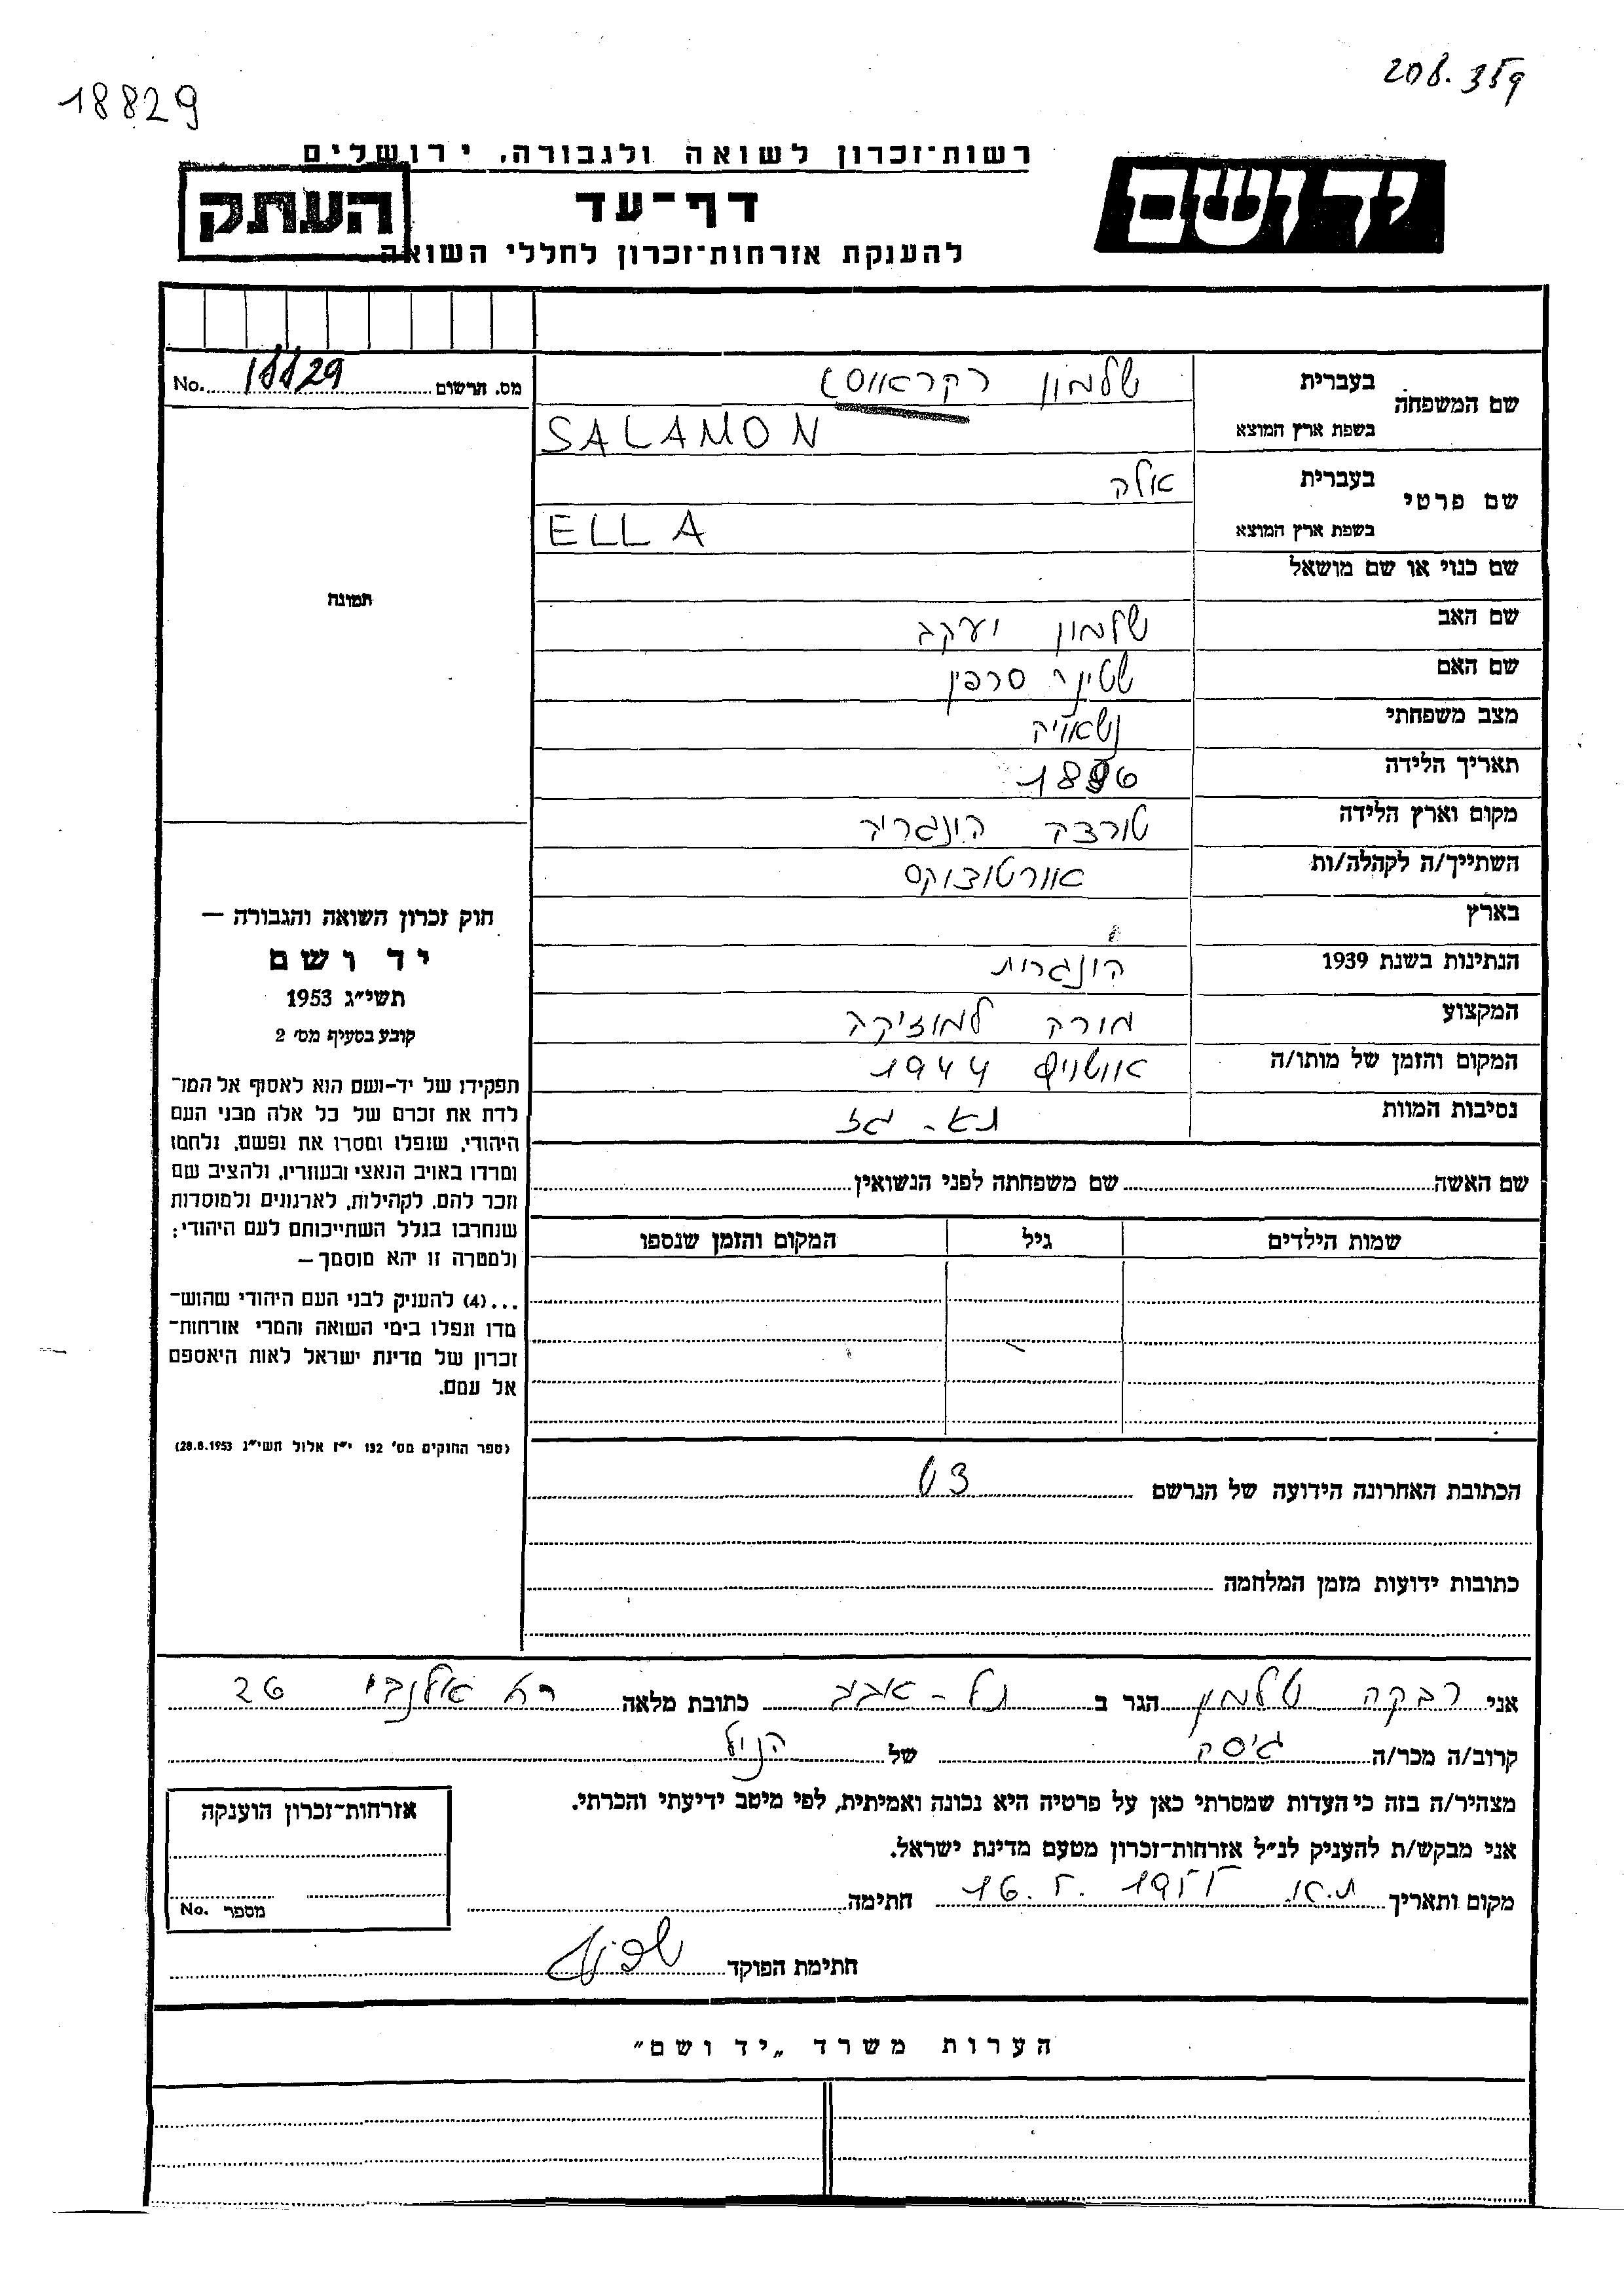 18829
208.359
רשות־זכרון לשואה ולגבורה, ירושלים
יד ושם
דף־עד
העתק
להענקת אזרחות־זכרון לחללי השואה
מס. תרשום 18829 No.
שם המשפחה
בעברית שלמון (קראוס)
בשפת ארץ המוצא SALAMON
שם פרטי
בעברית אלה
בשפת ארץ המוצא ELLA
שם כנוי או שם מושאל
שם האב שלמון יעקב
שם האם שטינר סרפין
מצב משפחתי נשואה
תאריך הלידה 1896
מקום וארץ הלידה טורדה הונגריה
השתייך/ה לקהלה/ות אורטודוקס
בארץ
הנתינות בשנת 1939 הונגרית
המקצוע מורה למוזיקה
המקום והזמן של מותו/ה אושויץ 1944
נסיבות המוות תא-גז
שם האשה שם משפחתה לפני הנשואין
שמות הילדים גיל המקום והזמן שנספו
הכתובת האחרונה הידועה של הנרשם
כתובות ידועות מזמן המלחמה
תמונה
חוק זכרון השואה והגבורה —
יד ושם
תשי״ג 1953
קובע בסעיף מס׳ 2
תפקידו של יד-ושם הוא לאסוף אל המו־
לדת את זכרם של כל אלה מבני העם
היהודי, שנפלו ומסרו את נפשם, נלחמו
ומרדו באויב הנאצי ובעוזריו, ולהציב שם
וזכר להם, לקהילות, לארגונים ולמוסדות
שנחרבו בגלל השתייכותם לעם היהודי;
ולמטרה זו יהא מוסמך —
...(4) להעניק לבני העם היהודי שהוש־
מדו ונפלו בימי השואה והמרי אזרחות־
זכרון של מדינת ישראל לאות היאספם
אל עמם.
(ספר החוקים מס׳ 132 י״ז אלול תשי״ג 28.8.1953)
אני רבקה שלמון הגר ב תל-אביב כתובת מלאה רח אלנבי 26
קרוב/ה מכר/ה גיסה של הנ״ל
מצהיר/ה בזה כי העדות שמסרתי כאן על פרטיה היא נכונה ואמיתית, לפי מיטב ידיעתי והכרתי.
אני מבקש/ת להעניק לנ״ל אזרחות־זכרון מטעם מדינת ישראל.
מקום ותאריך ת.א. 16.5.1955 חתימה
חתימת הפוקד
אזרחות־זכרון הוענקה
מספר No.
הערות משרד „יד ושם״